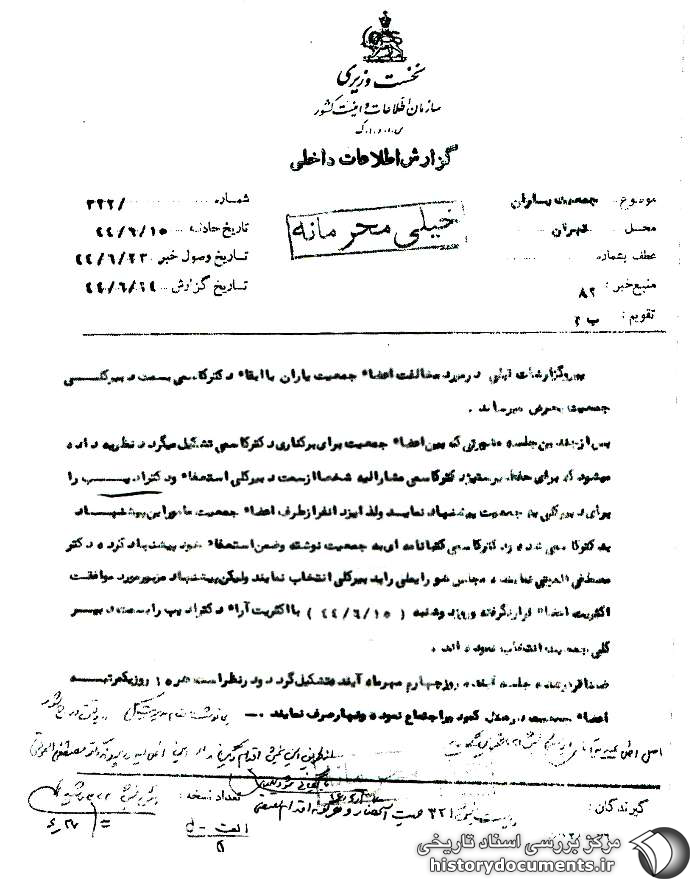 نخست وزیری
سازمان اطلاعات و امنیت کشور
س.ا.و.ا.ک
گزارش اطلاعات داخلی
خیلی محرمانه
موضوع : جمعیت یاران
محل تهران
عطف بشماره
منبع خبر : ۸۲
تقویم : ب ۲
شماره /۳۲۲
تاریخ حادثه ۴۴/۶/۱۵
تاریخ وصول خبر ۴۴/۶/۲۳
تاریخ گزارش ۴۴/۶/۲۴
پیرو گزارشات قبلی در مورد مخالفت اعضاء جمعیت یاران با ابقاء دکتر کاسمی بسمت دبیرکلی
جمعیت بعرض میرساند .
پس از چندین جلسه مشورتی که بین اعضاء جمعیت برای برکناری دکتر کاسمی تشکیل میگردد نظریه داده
میشود که برای حفظ پرستیژ دکتر کاسمی مشارالیه شخصا از سمت دبیرکلی استعفاء و دکتر ادیب را
برای دبیرکلی به جمعیت پیشنهاد نماید ولذا یزد انفر از طرف اعضاء جمعیت مامور این پیشنهاد
به دکتر کاسمی شده و دکتر کاسمی کتبا نامه ای به جمعیت نوشته وضمن استعفاء خود پیشنهاد کرده دکتر
مصطفی الموتی نماینده مجلس شورایملی را به دبیرکلی انتخاب نمایند ولیکن پیشنهاد مزبور مورد موافقت
اکثریت اعضاء قرار نگرفته و روز دوشنبه ( ۴۴/۶/۱۵ ) با اکثریت آراء دکتر ادیب را بسمت دبیر
کلی جمعیت انتخاب نموده اند .
ضمنا قرار شده جلسه آینده روز چهارم مهرماه آینده تشکیل گردد و در نظر است هر ۱۵ روز یکمرتبه
اعضاء جمعیت در هتل کمودور اجتماع نموده و نهار صرف نمایند .-
اصل
گیرندگان :
۳۲۱ جهت استحضار و هرگونه اقدام مقتضی
تعداد نسخه :
الف - ۵
مرکز بررسی اسناد تاریخی
historydocuments.ir